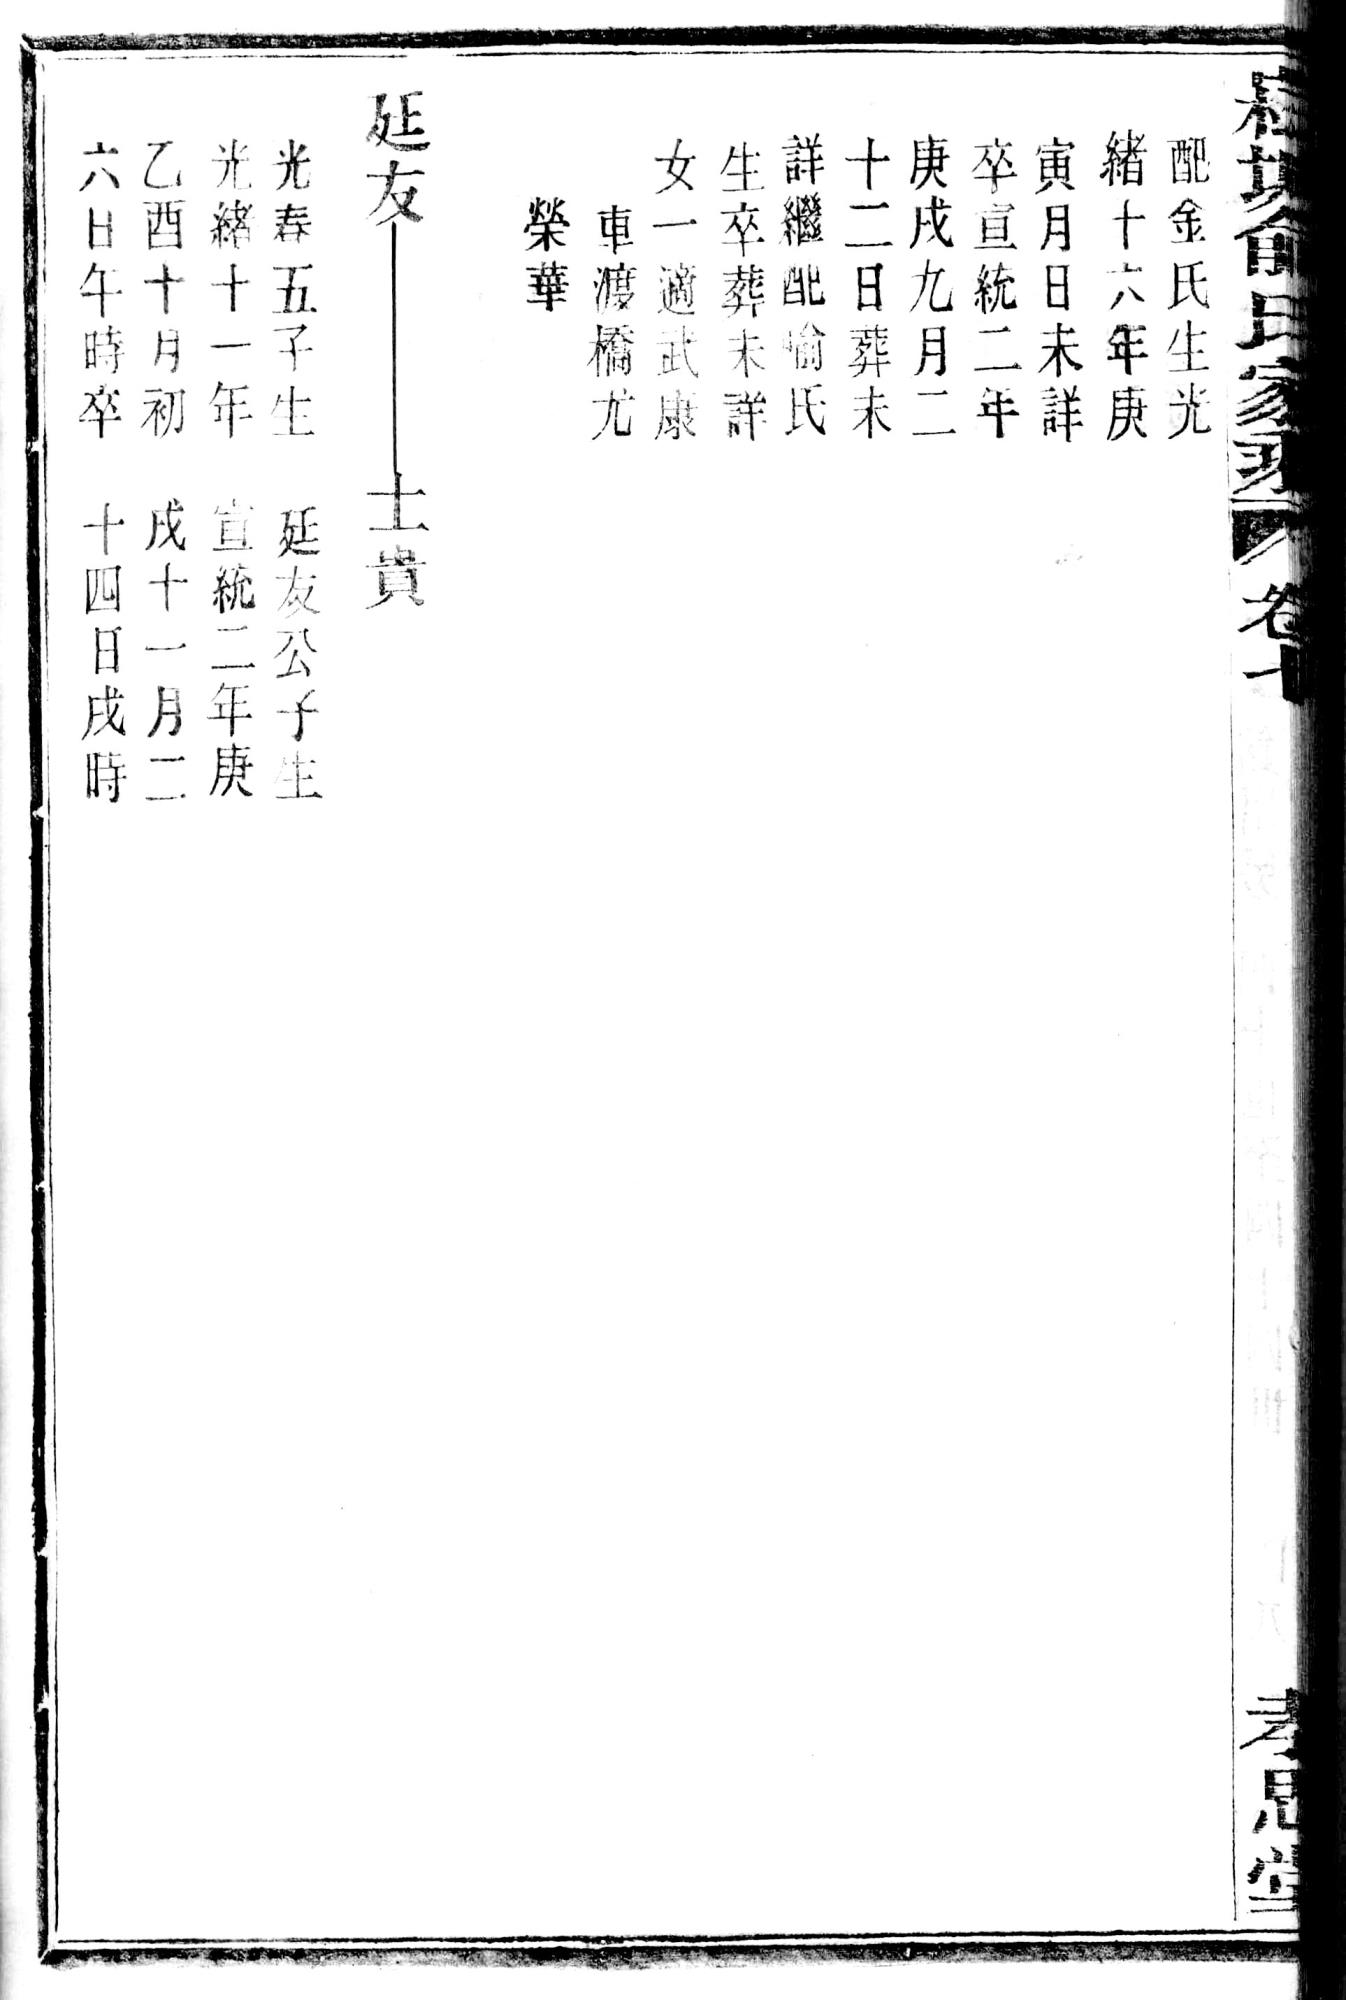 俞氏家乘
卷十
孝思堂
配金氏生光
緒十六年庚
寅月日未詳
卒宣統二年
庚戌九月二
十二日葬未
詳繼配喻氏
生卒葬未詳
女一適武康
車渡橋尤
榮華
延友
士貴
光春五子生
光緒十一年
乙酉十月初
六日午時卒
延友公子生
宣統二年庚
戌十一月二
十四日戌時